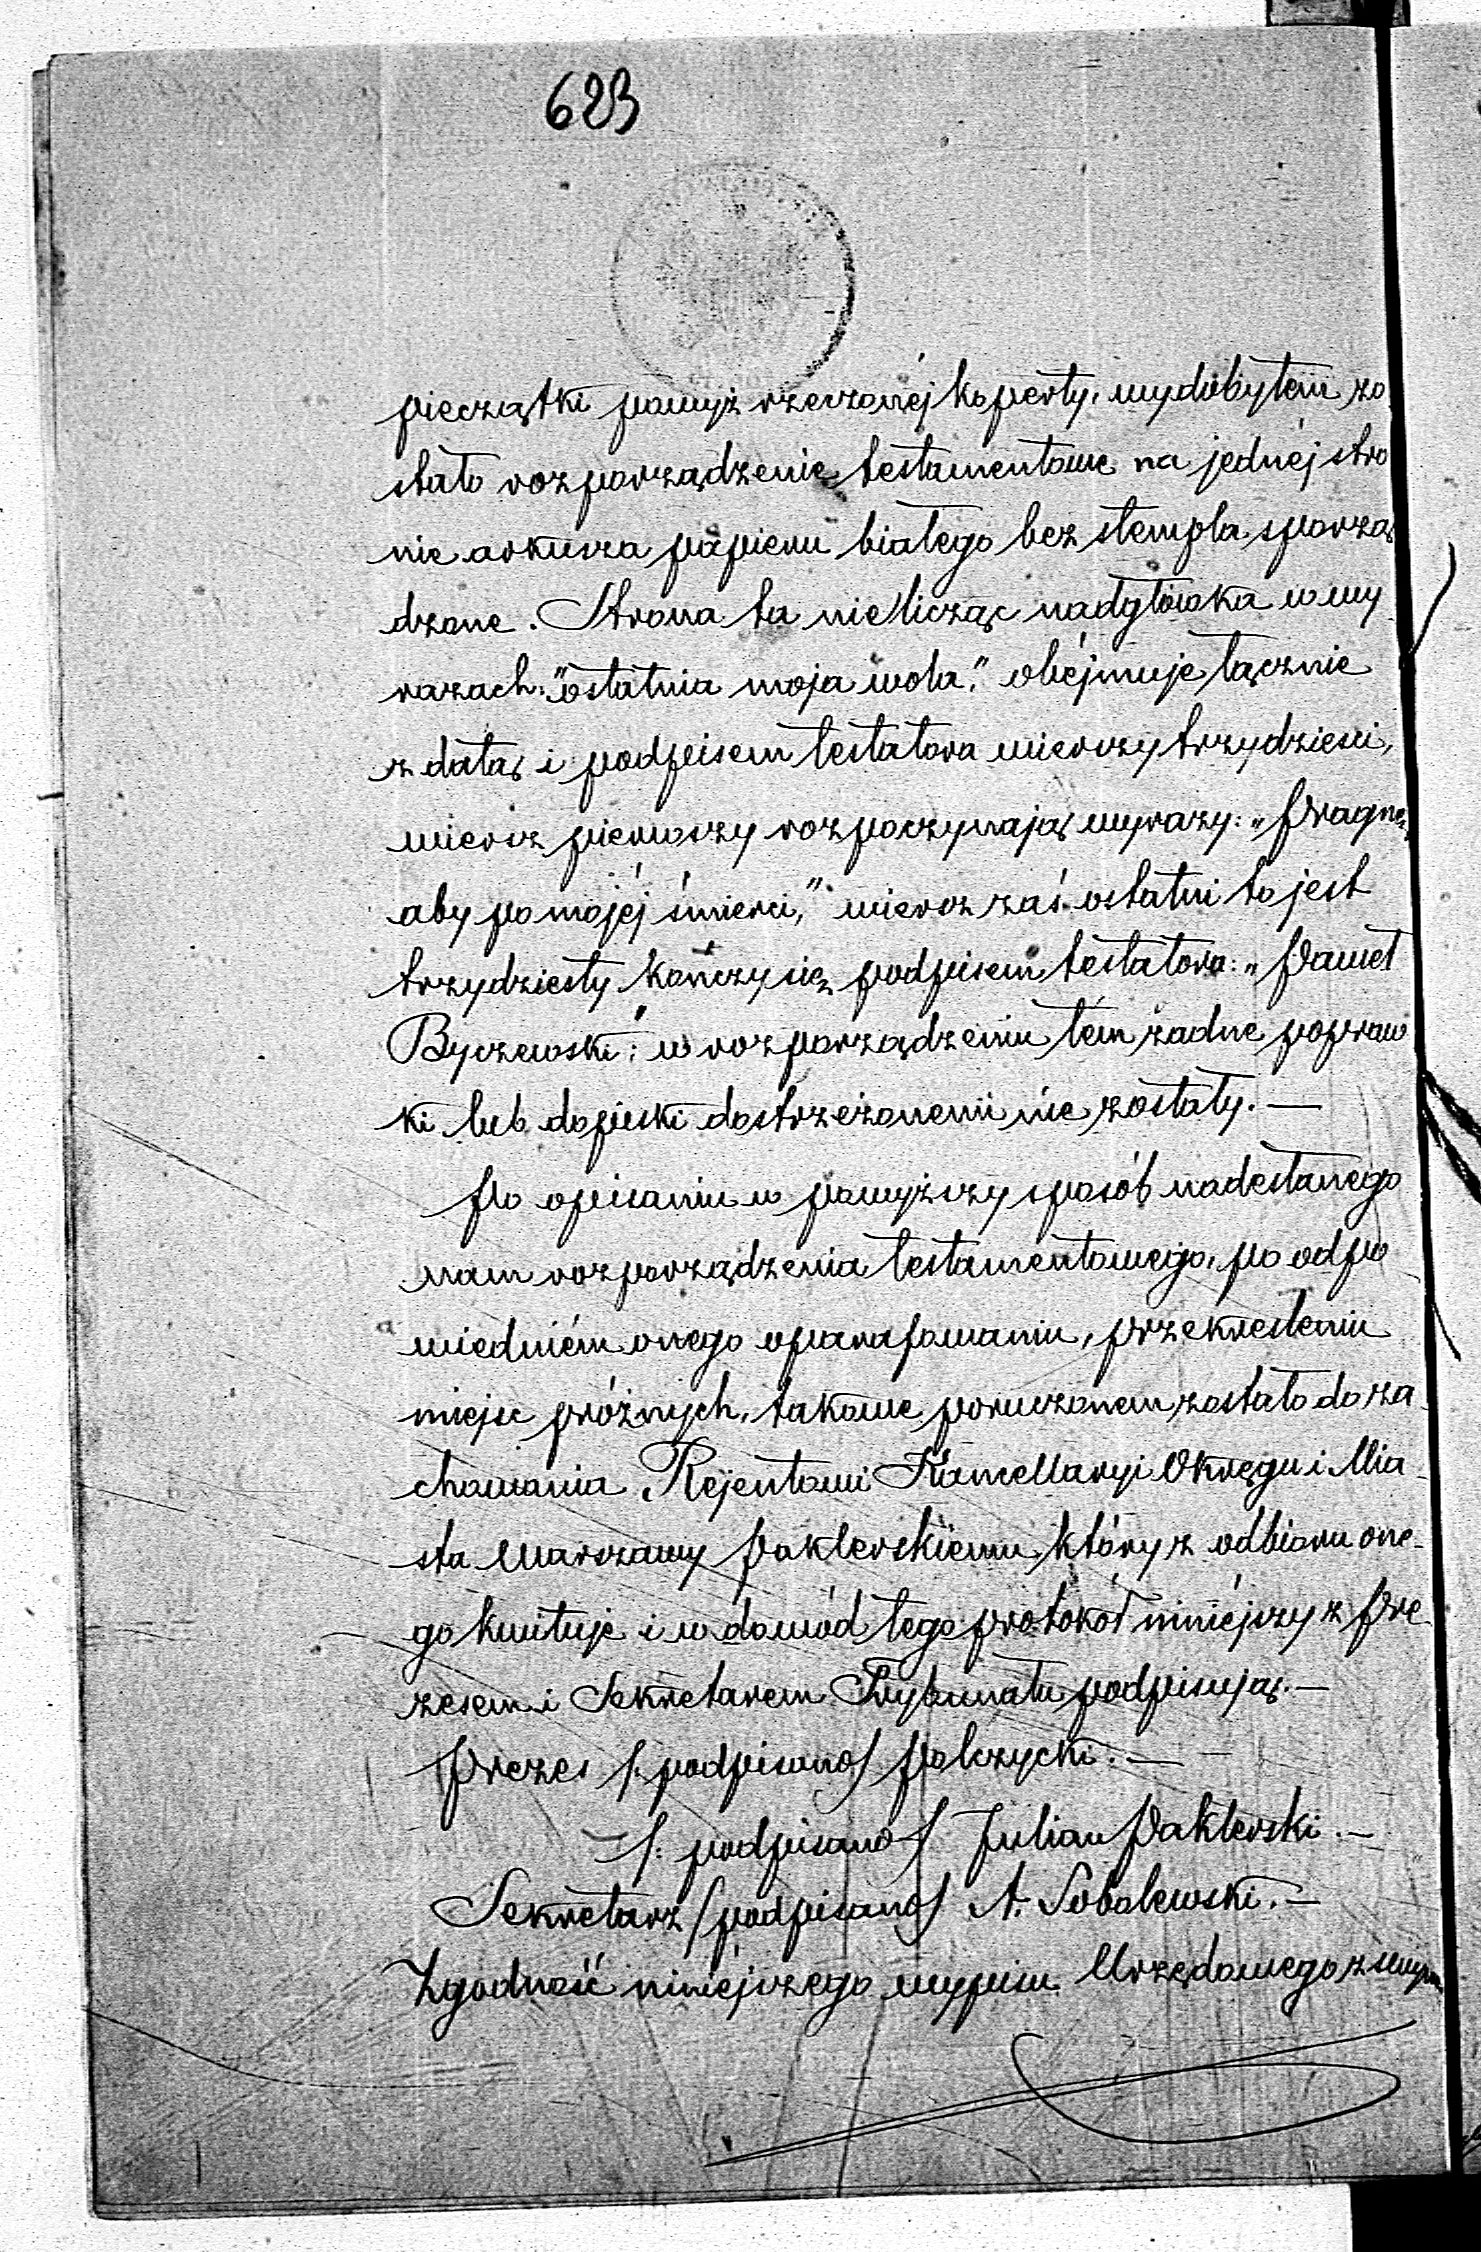 623
pieczątki powyż rzeczonéj koperty, wydobytem zo
stało rozporządzenie testamentowe na jednéj stro
nie arkusza papieru białego bez stempla sporzą
dzone. Strona ta nielicząc nadgłówka w wy
razach: "ostatnia moja wola," obéjmuje łącznie
z datą i podpisem testatora wierszy trzydzieści,
wiersz pierwszy rozpoczynają wyrazy: „Pragnę
aby po mojéj śmierci," wiersz zaś ostatni to jest
trzydziesty kończy się podpisem testatora: „Paweł
Byczewski"; w rozporządzeniu tém żadne popraw
ki lub dopiski dostrzeżonemi nie zostały. —
Po opisaniu w powyższy sposób nadesłanego
nam rozporządzenia testamentowego, po odpo
wiedniém onego oparafowaniu, przekreśleniu
miejsc próżnych, takowe poruczonem zostało do za
chowania Rejentowi Kancellaryi Okręgu i Mia
sta Warszawy Paklerskiemu, który z odbioru one-
go kwituje i w dowód tego protokół niniéjszy z Pre
zesem i Sekretarem Trybunału podpisują. —
Prezes /:podpisano/ Polczycki. —
— /: podpisano / Julian Paklerski. —
Sekretarz /podpisano/ A. Sobolewski. —
Zgodność niniéjszego wypisu Urzędowego z swym